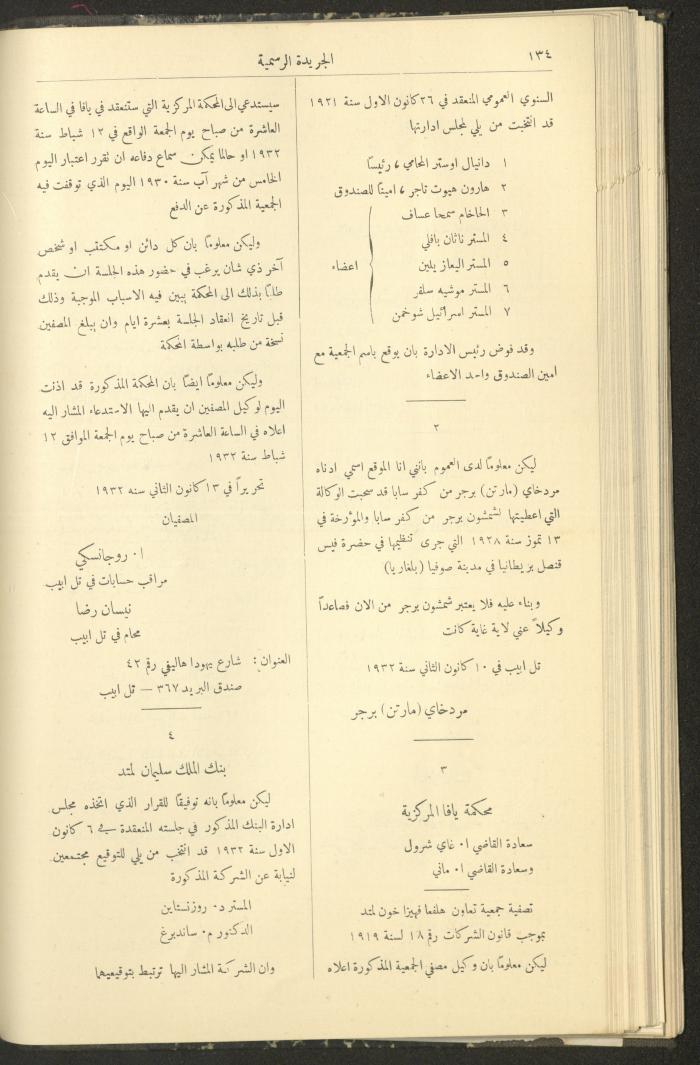 ١٣٤
الجريدة الرسمية
السنوي العمومي المنعقد في ٢٦ كانون الاول سنة ١٩٣١
قد انتخبت من يلي لمجلس ادارتها
١ دانيال اوستر المحامي ، رئيسًا
٢ هارون هيوت تاجر ، امينًا للصندوق
٣ الحاخام سمحا عساف
٤ المستر ناثان بافلي
٥ المستر اليعاز يلين
٦ المستر موشيه سلفر
٧ المستر اسرائيل شوخمن
اعضاء
وقد فوض رئيس الادارة بان يوقع باسم الجمعية مع
امين الصندوق واحد الاعضاء
٢
ليكن معلومًا لدى العموم بانني انا الموقع اسمي ادناه
مردخاي (مارتن) برجر من كفر سابا قد سحبت الوكالة
التي اعطيتها لشمشون برجر من كفر سابا والمؤرخة في
١٣ تموز سنة ١٩٢٨ التي جرى تنظيمها في حضرة فيس
قنصل بريطانيا في مدينة صوفيا (بلغاريا)
وبناء عليه فلا يعتبر شمشون برجر من الان فصاعدًا
وكيلاً عني لاية غاية كانت
تل ابيب في ١٠ كانون الثاني سنة ١٩٣٢
مردخاي (مارتن) برجر
٣
محكمة يافا المركزية
سعادة القاضي ا٠ غاي شرول
وسعادة القاضي ا٠ ماني
تصفية جمعية تعاون هلفعا فهيزا خون لمتد
بموجب قانون الشركات رقم ١٨ لسنة ١٩١٩
ليكن معلومًا بان وكيل مصفي الجمعية المذكورة اعلاه
سيستدعي الى المحكمة المركزية التي ستنعقد في يافا في الساعة
العاشرة من صباح يوم الجمعة الواقع في ١٢ شباط سنة
١٩٣٢ او حالما يمكن سماع دفاعه ان تقرر اعتبار اليوم
الخامس من شهر آب سنة ١٩٣٠ اليوم الذي توقفت فيه
الجمعية المذكورة عن الدفع
وليكن معلومًا بان كل دائن او مكتتب او شخص
آخر ذي شان يرغب في حضور هذه الجلسة ان يقدم
طلبًا بذلك الى المحكمة يبين فيه الاسباب الموجبة وذلك
قبل تاريخ انعقاد الجلسة بعشرة ايام وان يبلغ المصفين
نسخة من طلبه بواسطة المحكمة
وليكن معلومًا ايضًا بان المحكمة المذكورة قد اذنت
اليوم لوكيل المصفين ان يقدم اليها الاستدعاء المشار اليه
اعلاه في الساعة العاشرة من صباح يوم الجمعة الموافق ١٢
شباط سنة ١٩٣٢
تحريراً في ١٣ كانون الثاني سنه ١٩٣٢
المصفيان
ا٠ روجانسكي
مراقب حسابات في تل ابيب
نيسان رضا
محام في تل ابيب
العنوان: شارع يهودا هاليفي رقم ٤٢
صندق البريد ٣٦٧ — تل ابيب
٤
بنك الملك سليمان لمتد
ليكن معلومًا بانه توفيقًا للقرار الذي اتخذه مجلس
ادارة البنك المذكور في جلسته المنعقدة في ٦ كانون
الاول سنة ١٩٣٢ قد انتخب من يلي للتوقيع مجتمعين
لنيابة عن الشركة المذكورة
المستر د٠ روزنستاين
الدكتور م٠ ساندبرغ
وان الشركة المشار اليها ترتبط بتوقيعيهما